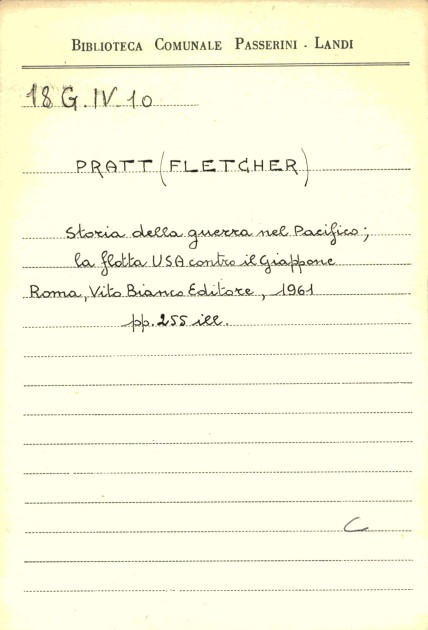 BIBLIOTECA COMUNALE PASSERINI - LANDI
18 G. IV. 10
PRATT (FLETCHER)
Storia della guerra nel Pacifico;
la flotta USA contro il Giappone
Roma, Vito Bianco Editore, 1961
pp. 255 ill.
C